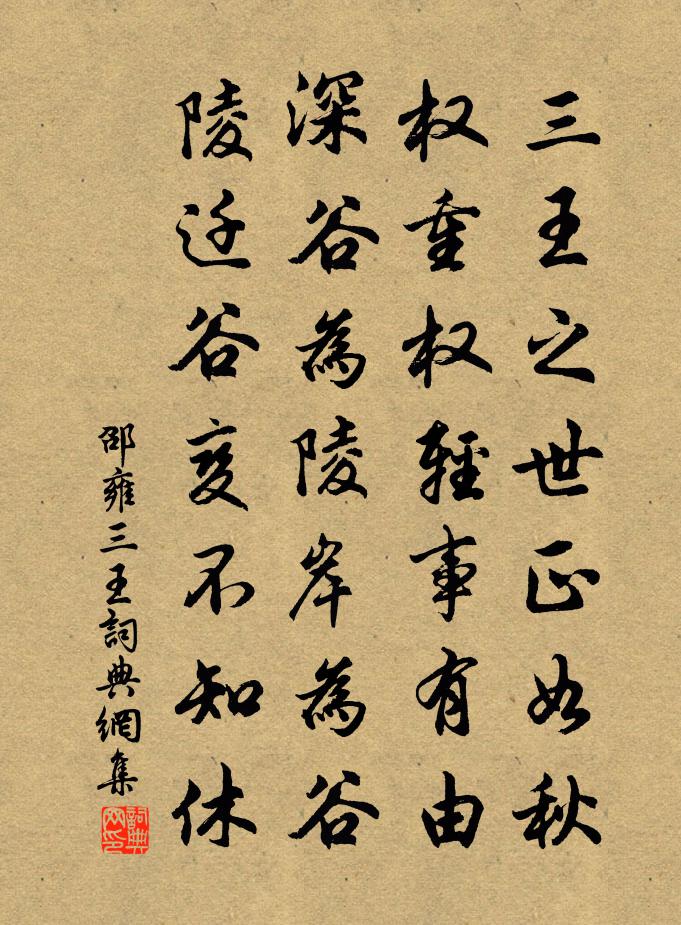 三王之世正如秋
权重权輕事有由
深谷為陵岸為谷
陵迁谷变不知休
邵雍三王詞典網集
詞典网印